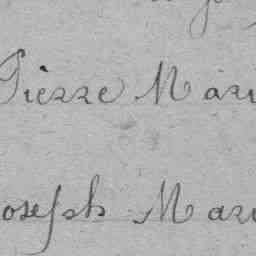 Pierre Mari
oseph Mari